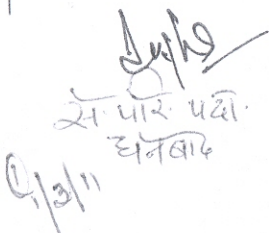 सं. परि. पदा.
धनबाद
9/3/11